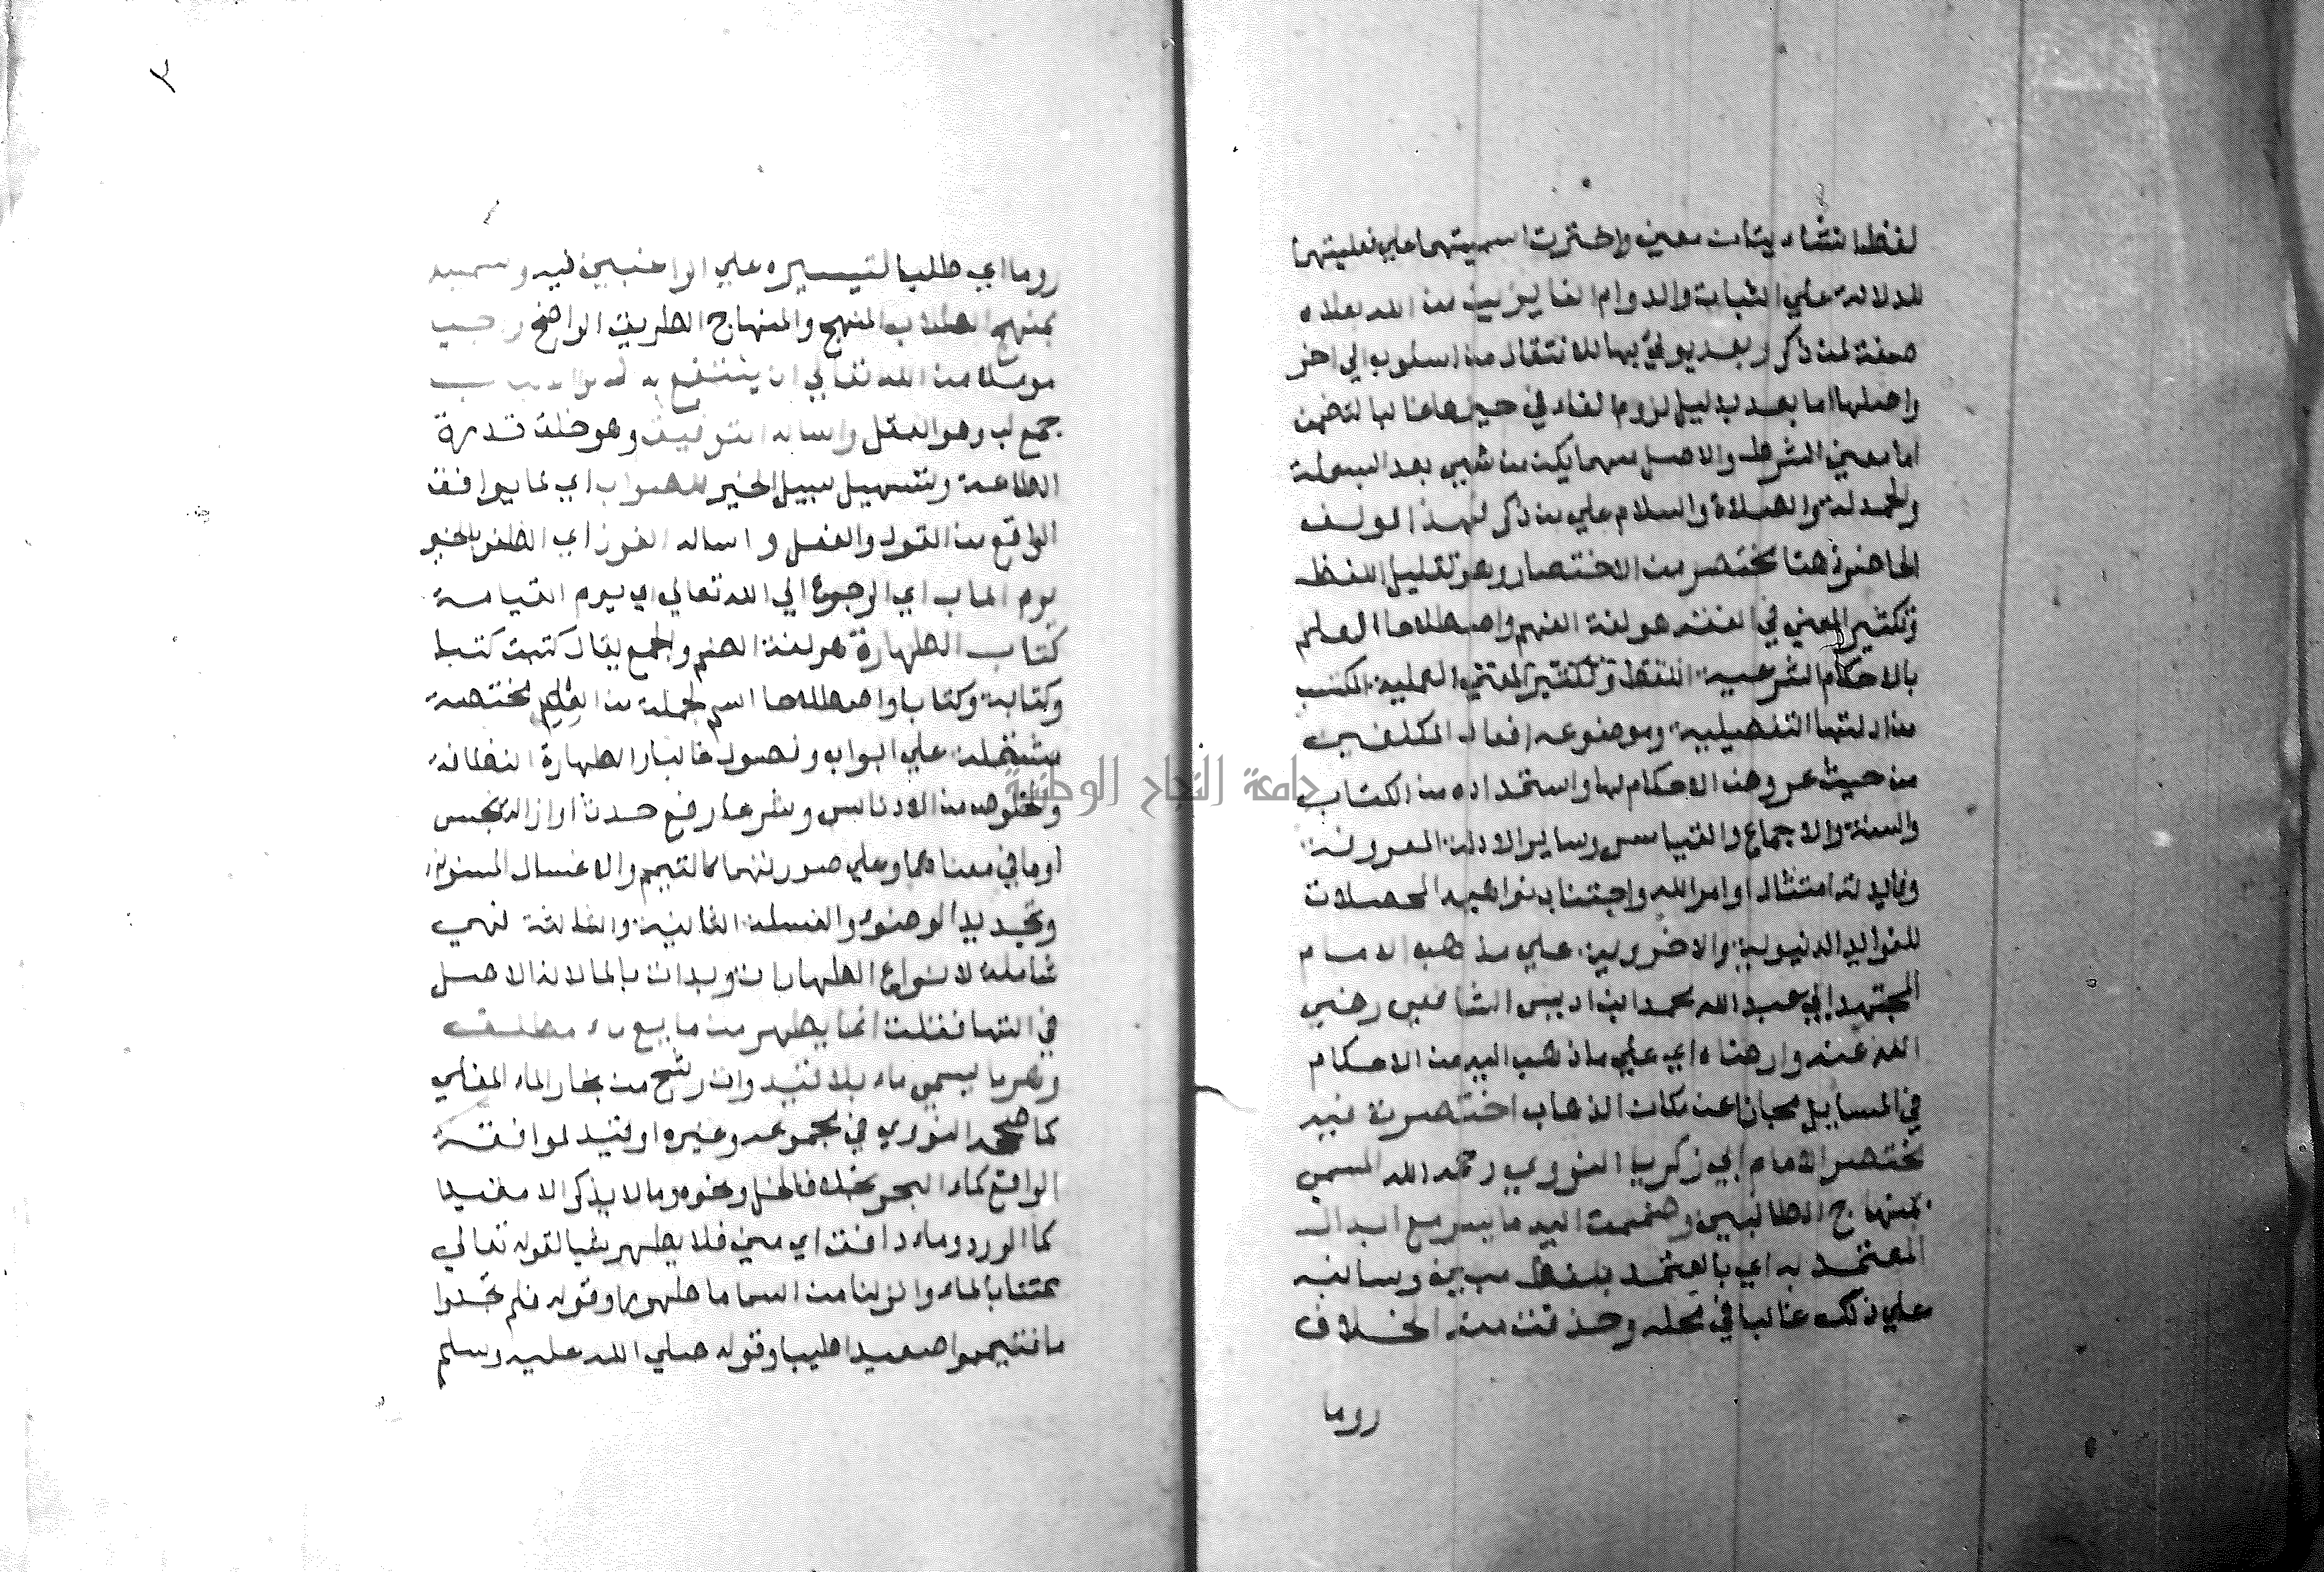 لفظا انشاييتان معني واخترت اسميتهما علي فعليتهما
للدلالة علي الثبات والدوام الفايزين من الله بعلاه
صفة لمن ذكر وبعد يوتي بها للانتقال من اسلوب الي اخر
واصلها اما بعد بدليل لزوم الفاء في حيزها غالبا لتضمن
اما معني الشرط والاصل مهما يكن من شيي بعد البسملة
والحمدلة والصلاة والسلام علي من ذكر فهذا المولف
الحاضر ذهنا مختصر من الاختصار وهو تقليل اللفظ
وتكثير المعني في الفقه هو لغة الفهم واصطلاحا العلم
بالاحكام الشرعية اللفظ وتكثير المعني العملية المكتسب
من ادلتها التفصيلية وموضوعه افعال المكلفين
من حيث عروض الاحكام لها واستمداده من الكتاب
والسنة والاجماع والقياس وساير الادلة المعروفة
وفايدته امتثال اوامر الله واجتناب نواهيه المحصلان
للفوايد الدنيوية والاخروية علي مذهب الامام
المجتهد ابي عبد الله محمد ابن ادريس الشافعي رضي
الله عنه وارضاه اي علي ما ذهب اليه من الاحكام
في المسايل مجازا عن مكان الذهاب اختصرت فيه
مختصر الامام ابي زكريا النووي رحمه الله المسمي
بمنهاج الطالبين وضممت اليه ما يسر مع ابدال
المعتمد به اي بالمعتمد بلفظ مبين وسانبه
علي ذلك غالبا في محله وحذفت منه الخلاف
روما
٣
روما اي طلبا لتيسيره علي الراغبين فيه وسميته
بمنهج الطلاب المنهج والمنهاج الطريق الواضح
موملا من الله تعالي ان ينتفع به
جمع لب وهو العقل واساله التوفيق وهو خلق قدرة
الطاعة وتسهيل سبيل الخير للصواب اي لما يوافق
الواقع من القول والفعل واساله الفوز اي الظفر بالخير
يوم الماب اي الرجوع الي الله تعالي اي يوم القيامة
كتاب الطهارة هو لغة الضم والجمع يقال كتبت كتبا
وكتابة وكتابا واصطلاحا اسم لجملة من العلم مختصة
مشتملة علي ابواب وفصول غالبا والطهارة النظافة
والخلوص من الادناس وشرعا رفع حدث او ازالة نجس
او ما في معناهما وعلي صورتهما كالتيمم والاغسال المسنونة
وتجديد الوضوء والغسلة الثانية والثالثة فهي
شاملة لانواع الطهارات وبدات بالما لانه الاصل
في التها فقلت انما يطهر من مايع ماء مطلق
وهو ما يسمي ماء بلا قيد وان رشح من بخار الماء المغلي
كما صححه النووي في مجموعه وغيره او قيد لموافقة
الواقع كماء البحر بخلاف الخل ونحوه وما لا يذكر الا مقيدا
كما الورد وماء دافق اي مني فلا يطهر شيا لقوله تعالي
ممتنا بالماء وانزلنا من السما ما طهورا وقوله فلم تجدوا
ما فتيمموا صعيدا طيبا وقوله صلي الله عليه وسلم
جامعة النجاح الوطنية